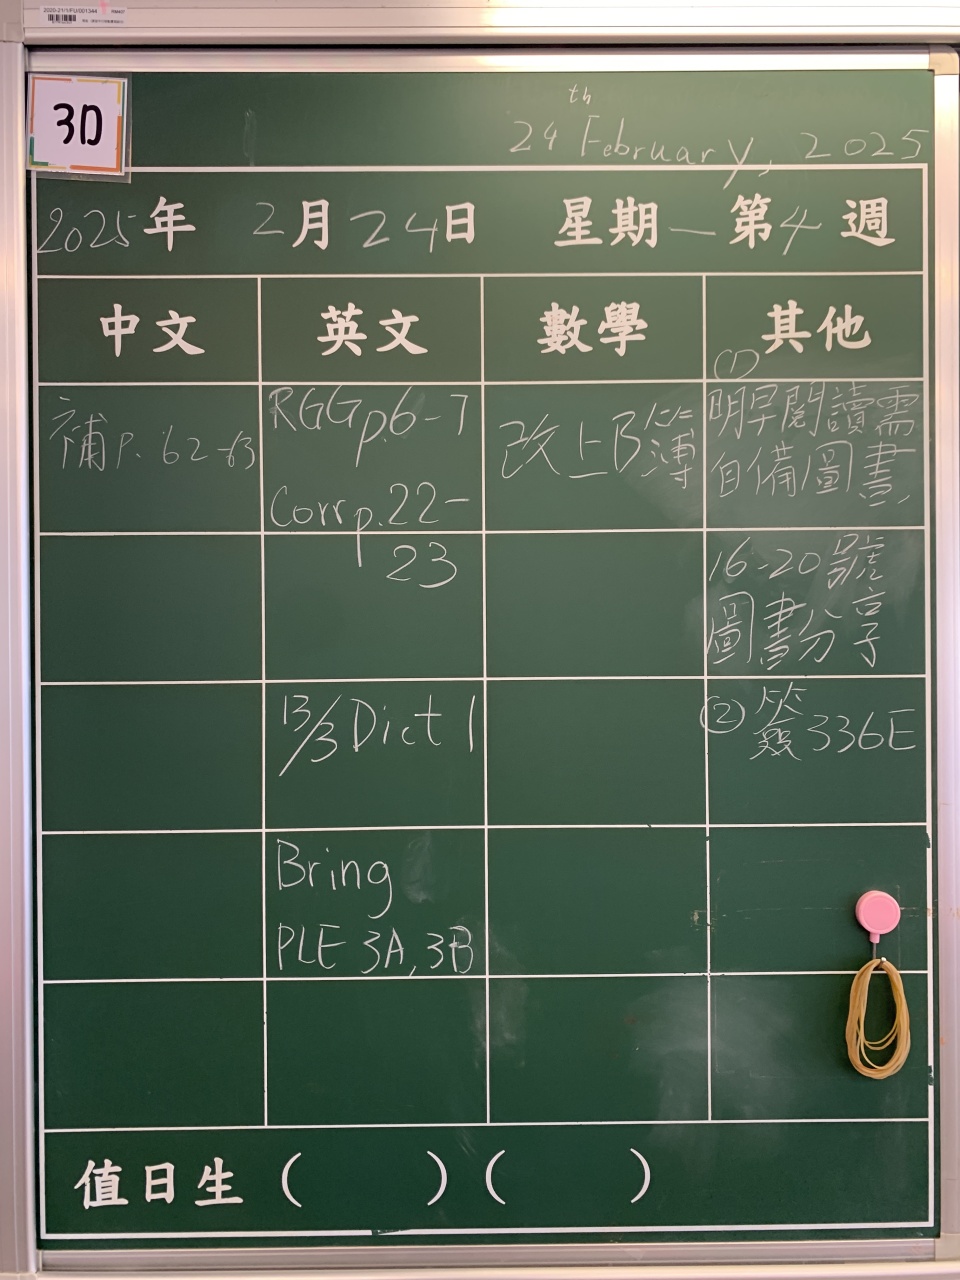 2020-21/1/FU/001344
3D
24th February, 2025
2025年 2月24日 星期一 第4週
中文 英文 數學 其他
補P. 62-63
RGG p.6-7
Corr p.22-
23
13/3 Dict 1
Bring
PLE 3A, 3B
改上B簿
(1)
明早閱讀需
自備圖書,
16-20號
圖書分享
② 簽336E
值日生 ( ) ( )